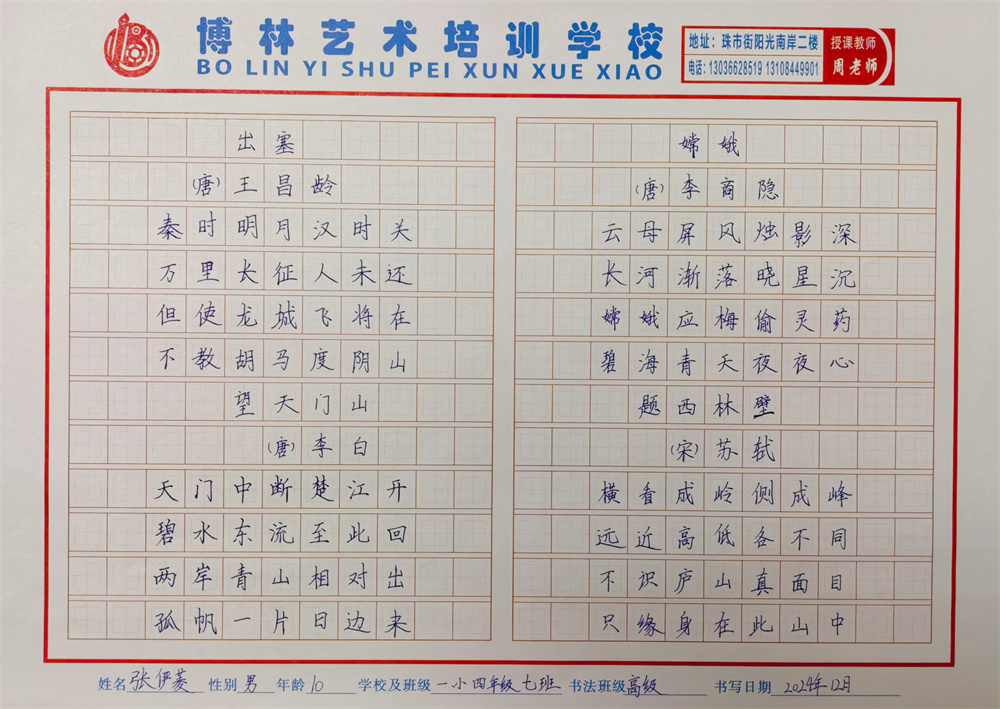 博林艺术培训学校
BO LIN YI SHU PEI XUN XUE XIAO
地址：珠市街阳光南岸二楼
电话：13036628519 13108449901
授课教师
周老师
出塞
（唐）王昌龄
秦时明月汉时关
万里长征人未还
但使龙城飞将在
不教胡马度阴山
望天门山
（唐）李白
天门中断楚江开
碧水东流至此回
两岸青山相对出
孤帆一片日边来
嫦娥
（唐）李商隐
云母屏风烛影深
长河渐落晓星沉
嫦娥应梅偷灵药
碧海青天夜夜心
题西林壁
（宋）苏轼
横看成岭侧成峰
远近高低各不同
不识庐山真面目
只缘身在此山中
姓名 张伊菱 性别 男 年龄 10 学校及班级 一小四年级七班 书法班级 高级 书写日期 2024年12月